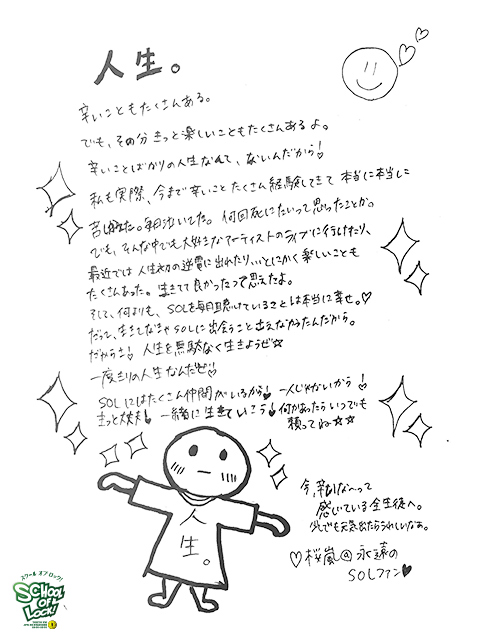 人生。
辛いこともたくさんある。
でも、その分きっと楽しいこともたくさんあるよ。
辛いことばかりの人生なんて、ないんだから!
私も実際、今まで辛いことたくさん経験してきて本当に本当に
苦しかった。毎日泣いてた。何回死にたいって思ったことか。
でも、そんな中でも大好きなアーティストのライブに行けたり、
最近では人生初の逆電に出れたり、とにかく楽しいことも
たくさんあった。生きてて良かったって思えたよ。
そして、何よりも、SOLを毎日聴けていることは本当に幸せ。♡
だって、生きてなきゃSOLに出会うことも出来なかったんだから。
だからさ!人生を無駄なく生きようぜ☆
一度きりの人生なんだぜ!
SOLにはたくさん仲間がいるから♥一人じゃないから!
きっと大丈夫!一緒に生きていこう!何かあったらいつでも
頼ってね☆☆
人生。
今、辛いな〜って
感じている全生徒へ。
少しでも元気出たらうれしいなぁ。
♡桜嵐@永遠の
SOLファン♥
スクール オブ ロック!
SCHOOL OF LOCK!